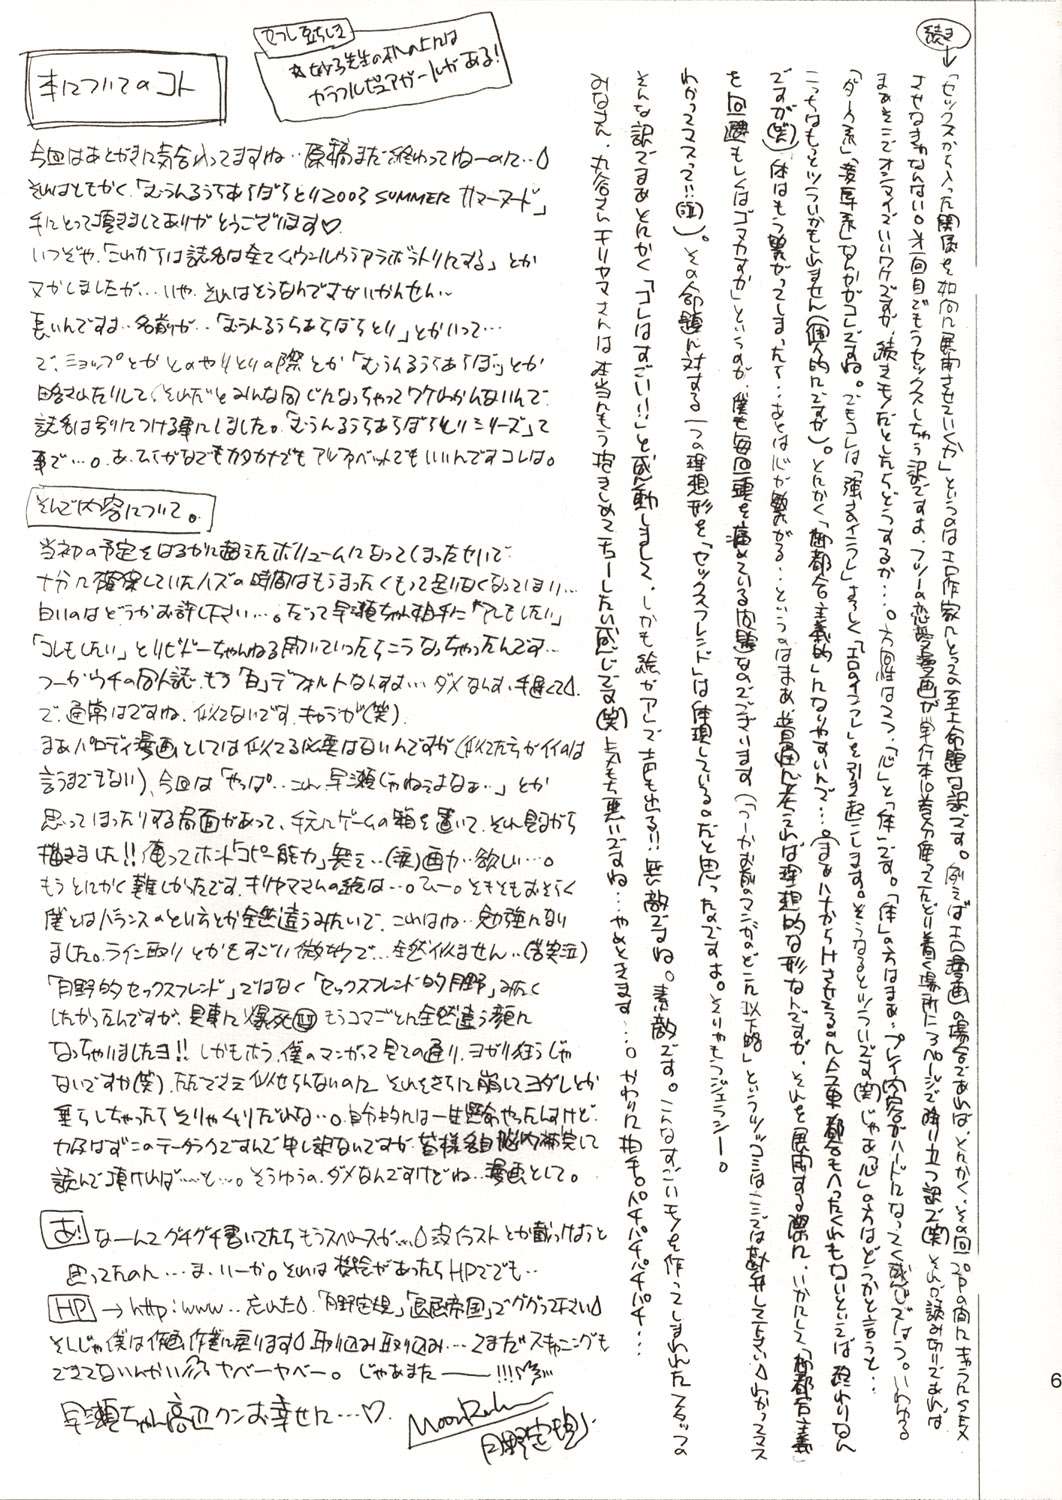 続き
「セックスから入った関係を如何に展開させていくか」というのはエロ作家にとって至上命題な訳です。例えばエロ漫画の場合であれば、とにかく、その回20Pの間にキャラにSEX
させなきゃなんない。オー回目でもうセックスしちゃう訳ですよ、フツーの恋愛漫画が単行本10巻分使ってたどり着く場所に3ページで降り立つ訳で(笑) それが読み切りであれば
まぁそこでオシマイでいいワケですが、続きモノだとしたらどうするか…。方向性は2つ、「心」と「体」です。「体」の方はまぁ、プレイ内容がハードになってく感じでしょう。いわゆる
「ダーク系」「凌辱系」なんかがコレですね。でもコレは「強さのインフレ」よろしく「エロのインフレ」を引き起こします。そうなるとツライです(笑) じゃあ「心」の方はどうかと言うと…
こっちはもっとツライかもしれません(個人的にですが)。とにかく「御都合主義的」になりやすいんで…。
ですが(笑) 体はもう繋がってしまったて…あとは心が繋がる…というのはまぁ、普通に考えれば理想的な形なんですが、それを展開する際に、いかにして「御都合主義」
を回避もしくはゴマカすか」というのが、僕も毎回頭を痛めている問題なのでございます
わかってマスって!!(泣)。その命題に対する一つの理想形を「セックスフレンド」は体現している。だと思ったのですよ。そりゃもうジェラシー。
そんな訳でまぁとにかく「コレはすごい!!」と感動しまして、しかも絵がアレで声も出る!! 無敵ですね。素敵です。こんなすごいモノを作ってしまわれたスタッフの
みなさん、丸谷さんキリヤマさんは本当にもう抱きしめてチューしたい感じです(笑) 気もち悪いですね…やめときます…。かわりに拍手。パチパチパチパチパチ…
ぜつし立ちしま
カラフルピュアガールがある!
本についてのコト
今回はあとがきに気合入ってますね…原稿まだ終わってねーのに…
それはともかく、「むうんるうらあらぼらとり2003 SUMMER サマーヌード」
手にとって頂きましてありがとうございます♡
いつぞや、「これからは誌名は全てムウンルウラアラボラトリにする」とか
ヌかしましたが…いや、それはどうなんですがいかんせん〜
長いんですよ…名前が…「むうんるうらあらぼらとり」とかいって…
で、ショップとかとのやりとりの際とか「むうんるうらあらぼ」とか
略されたりして、それだとみんな同じになっちゃってワケわかんないんで、
誌名は別につける事にしました。「むうんるうらあらぼらとりシリーズ」て
事で…。あ、ひらがなでもカタカナでもアルファベットでもいいんですコレは。
そんで内容について。
当初の予定をはるかに超えたボリュームになってしまったせいで
十分に確保していたハズの時間はもうまったくもって足りなくなってしまい…
白いのはどうかお許し下さい…。だって早瀬ちゃん相手に「アレもしたい」
「コレもしたい」とリビドーちゃんねる開いていったらこうなっちゃったんです…
つーかウチの同人誌、もう「白」デフォルトなんすよ…ダメなんす、手遅くて
で、通常はですね、似てないです、キャラが(笑)
まぁパロディ漫画としては似てる必要はないんですが(似てた方がイイのは
言うまでもない)、今回は「やっぱ…こんな早瀬じゃねぇよなぁ…」とか
思ってしまったりする局面があって、手元にゲームの箱を置いて、それ見ながら
描きました!! 俺ってホント「コピー能力」無ぇ…(涙)画力…欲しい…。
もうとにかく難しかったです、キリヤマさんの絵は…。ひー。そもそもおそらく
僕とはバランスのとり方とか全然違うみたいで、これはね…勉強になり
ました。ライン取りとかもすごい微妙で…全然似ません…(苦笑泣)
「月野的セックスフレンド」ではなく「セックスフレンド的月野」みたく
したかったんですが、見事に爆死(泣)もうコマごとに全然違う顔に
なっちゃいましたヨ!! しかもホラ、僕のマンガって見ての通り、ヨガリ狂うじゃ
ないですか(笑)、ただでさえ似せらんないのに、それをさらに崩してヨダレとか
垂らしちゃったらそりゃムリだわな…。自分的には一生懸命やったんすけど、
力及ばずこのテータラクですんで申し訳ないですが、皆様各自脳内補完して
読んで頂ければ…と…。そうゆうの、ダメなんですけどね…漫画として。
あ! なーんてグチグチ書いてたらもうスペースが…没イラストとか載っけようと
思ってたのに…ま、いーか。それは機会があったらHPででも…
HP → http:www…忘れた 「月野定規」「退屈帝国」でググって下さい
そんじゃ僕は作画作業に戻ります 取り込み取り込み…てまだスキャニングも
できてないんかい ヤベーヤベー。じゃあまたーーー!!!
早瀬ちゃん高辺クンお幸せに…♡
MoonRuler
月野定規
6